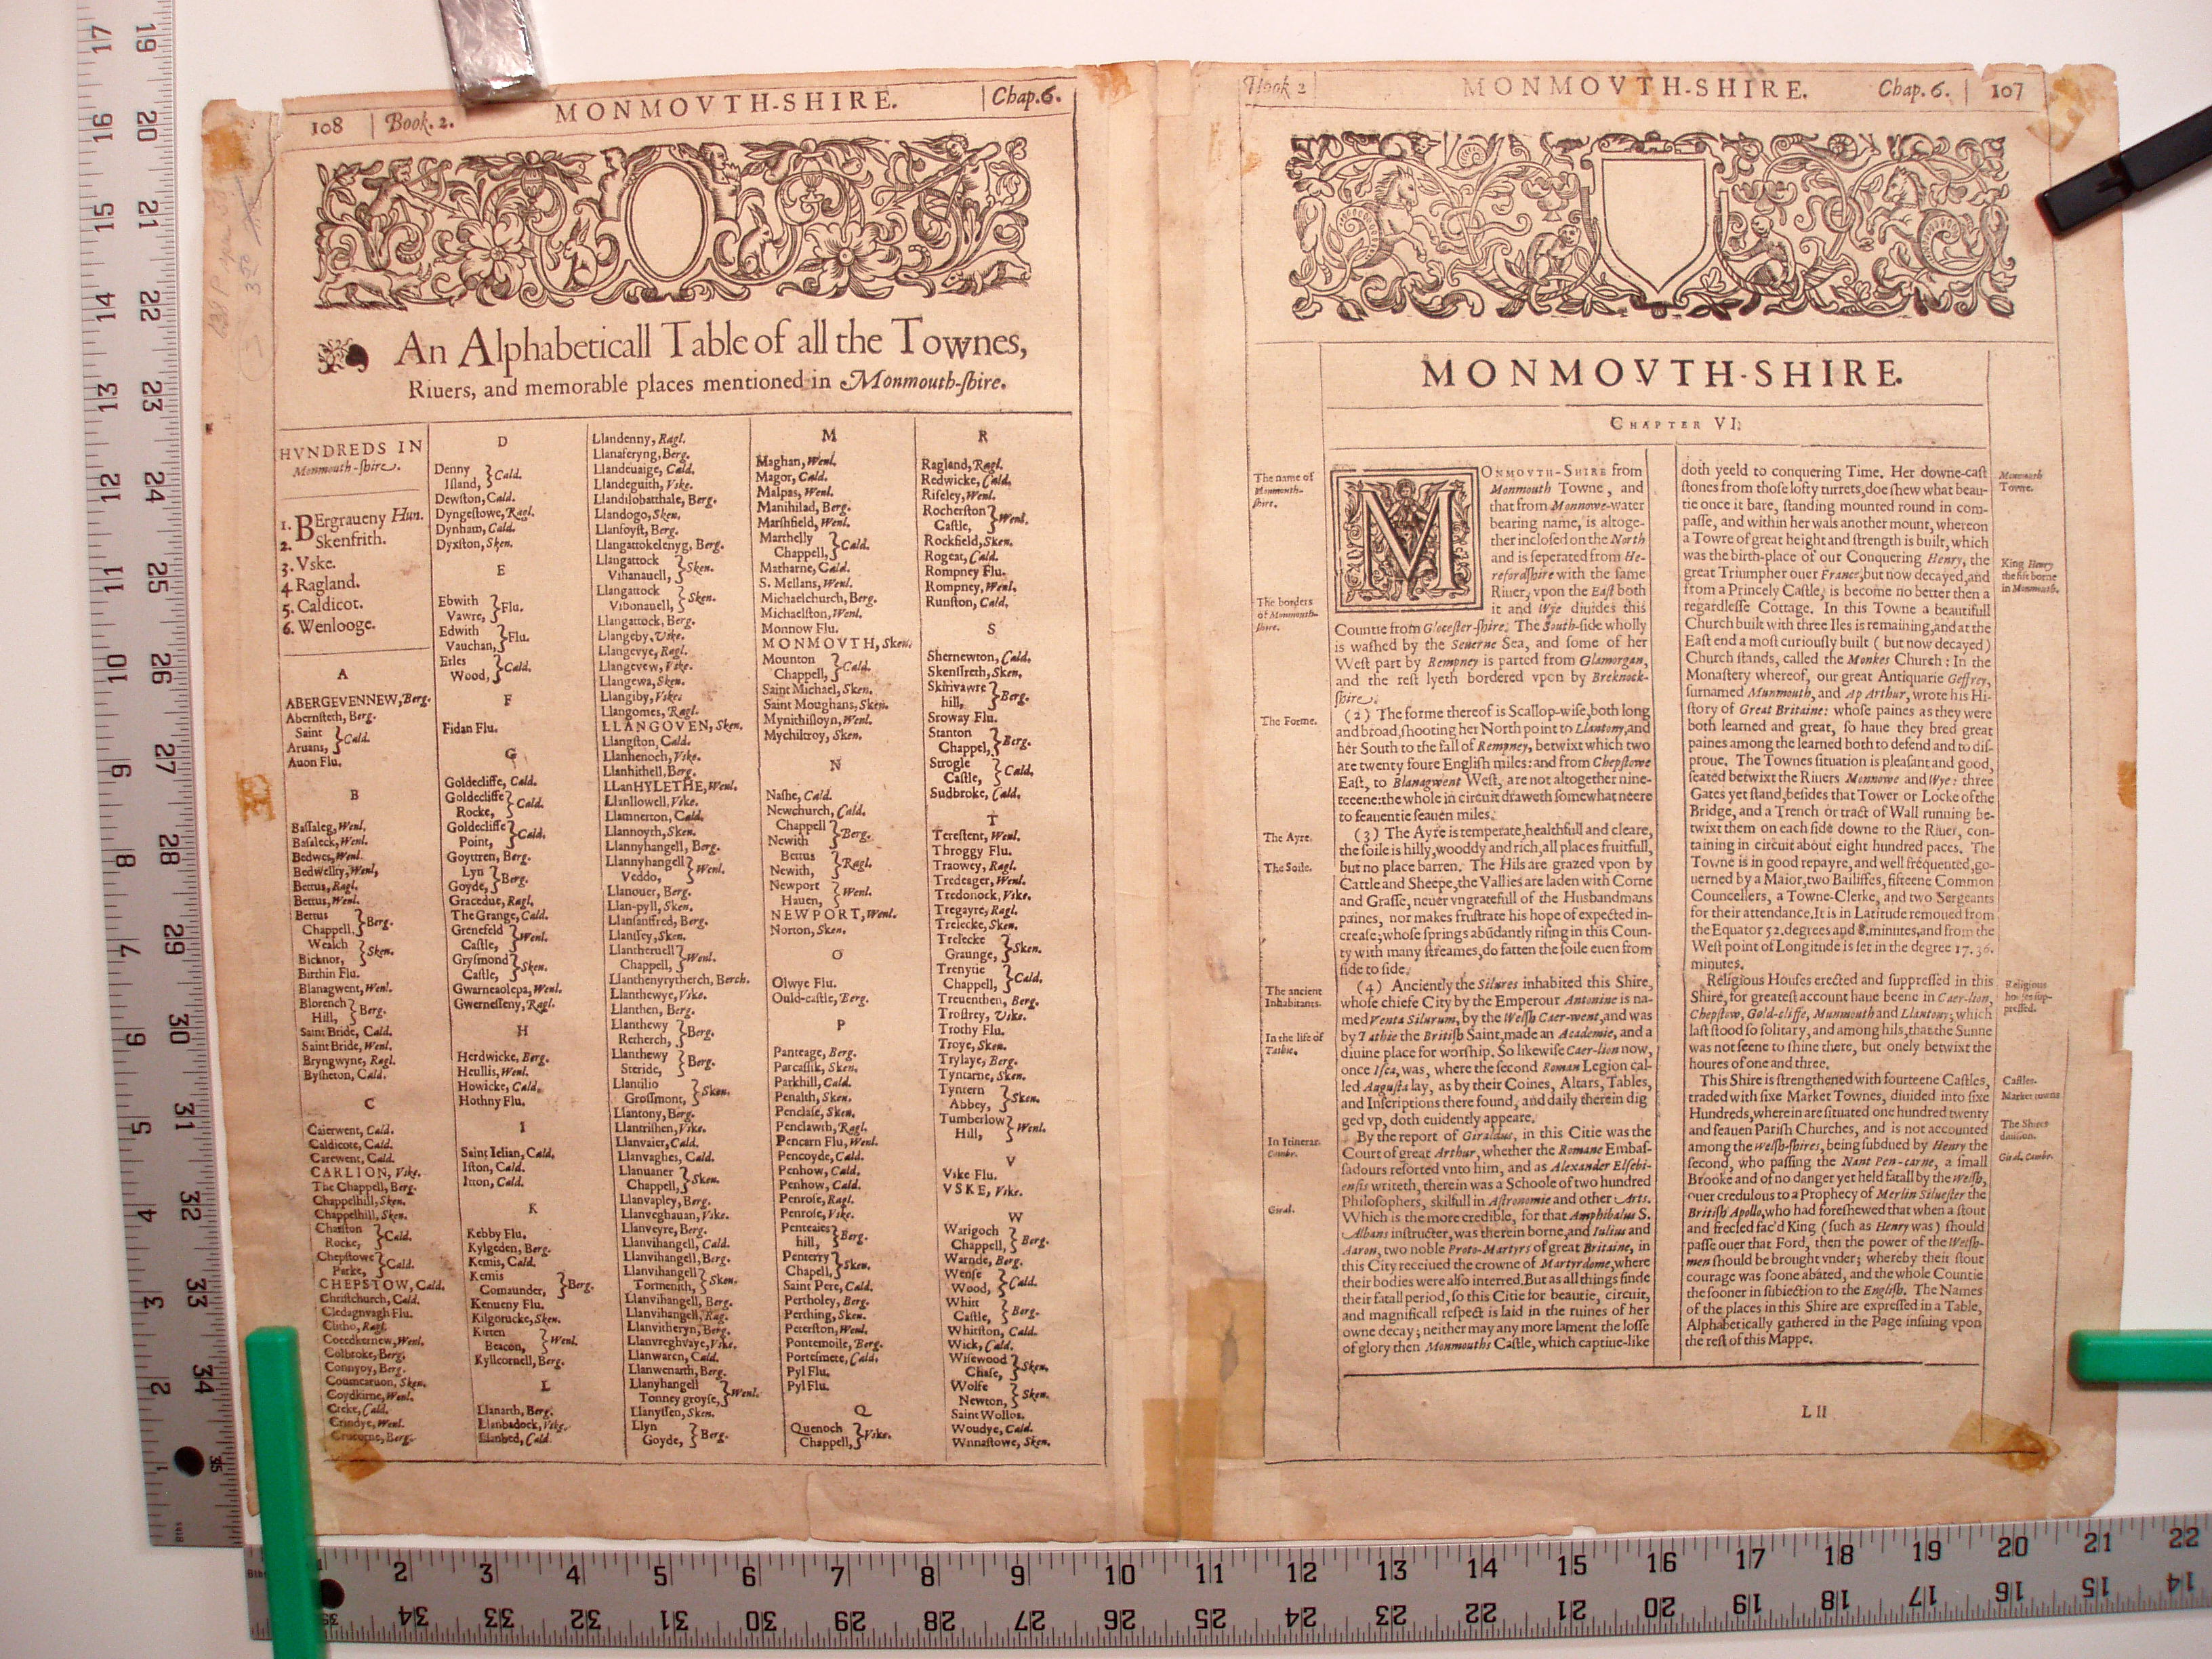 108 | Book. 2. MONMOVTH-SHIRE. | Chap. 6.
An Alphabeticall Table of all the Townes,
Riuers, and memorable places mentioned in Monmouth-ſhire.
HVNDREDS IN
Monmouth-ſhire.
1. BErgraueny Hun.
2. Skenfrith.
3. Vske.
4 Ragland.
5. Caldicot.
6. Wenlooge.
A
ABERGEVENNEW, Berg.
Abernſteth, Berg.
Saint
Aruans, } Cald.
Auon Flu.
B
Baſſaleg, Wenl.
Baſaleck, Wenl.
Bedwes, Wenl.
Bedwellty, Wenl,
Bettus, Ragl.
Bettus, Wenl.
Bettus
Chappell, } Berg.
Wealch
Bicknor, } Sken.
Birthin Flu.
Blanagwent, Wenl.
Blorench
Hill, } Berg.
Saint Bride, Cald.
Saint Bride, Wenl.
Bryngwyne, Ragl.
Byſheton, Cald.
C
Caierwent, Cald.
Caldicote, Cald.
Carewent, Cald.
CARLION, Vske.
The Chappell, Berg.
Chappelhill, Sken.
Chappelhill, Sken.
Charſton
Rocke, } Cald.
Chepſtowe
Parke, } Cald.
CHEPSTOW, Cald.
Chriſtchurch, Cald.
Cledagnvagh Flu.
Clitho, Ragl.
Coeedkernew, Wenl.
Colbroke, Berg.
Connyoy, Berg.
Coumcaruon, Sken.
Coydkirne, Wenl.
Creke, Cald.
Crindye, Wenl.
Crucorne, Berg.
D
Denny
Iſland, } Cald.
Dewſton, Cald.
Dyngeſtowe, Ragl.
Dynham, Cald.
Dyxſton, Sken.
E
Ebwith
Vawre, } Flu.
Edwith
Vauchan, } Flu.
Erles
Wood, } Cald.
F
Fidan Flu.
G
Goldecliffe, Cald.
Goldecliffe
Rocke, } Cald.
Goldecliffe
Point, } Cald.
Goyttren, Berg.
Lyn
Goyde, } Berg.
Gracedue, Ragl.
The Grange, Cald.
Grenefeld
Caſtle, } Wenl.
Gryſmond
Caſtle, } Sken.
Gwarneaolepa, Wenl.
Gwerneſſeny, Ragl.
H
Herdwicke, Berg.
Heullis, Wenl.
Howicke, Cald.
Hothny Flu.
I
Saint Ielian, Cald.
Iſton, Cald.
Itton, Cald.
K
Kebby Flu.
Kylgeden, Berg.
Kemis, Cald.
Kemis
Comaunder, } Berg.
Kenueny Flu.
Kilgorucke, Sken.
Kirten
Beacon, } Wenl.
Kyllcornell, Berg.
L
Llanarth, Berg.
Llanbadock, Vske.
Llanbed, Cald.
Llandenny, Ragl.
Llanaferyng, Berg.
Llandeuaige, Cald.
Llandeguith, Vske.
Llandilobatthale, Berg.
Llandogo, Sken.
Llanfoyſt, Berg.
Llangattokelenyg, Berg.
Llangattock
Vihanauell, } Sken.
Llangattock
Vibonauell, } Sken.
Llangattock, Berg.
Llangeby, Vske.
Llangevye, Ragl.
Llangevew, Vske.
Llangewa, Sken.
Llangiby, Vske.
Llangomes, Ragl.
LLANGOVEN, Sken.
Llangſton, Cald.
Llanhenoch, Vske.
Llanhithell, Berg.
LLanHYLETHE, Wenl.
Llanllowell, Vske.
Llamnerton, Cald.
Llannoyth, Sken.
Llannyhangell, Berg.
Llannyhangell
Veddo, } Wenl.
Llanouer, Berg.
Llan-pyll, Sken.
Llanſanffred, Berg.
Llanſſey, Sken.
Llantheruell
Chappell, } Wenl.
Llanthenyrytherch, Berch.
Llanthewye, Vske.
Llanthen, Berg.
Llanthewy
Retherch, } Berg.
Llanthewy
Steride, } Berg.
Llantilio
Groſſmont, } Sken.
Llantony, Berg.
Llantriſſen, Vske.
Llanvaier, Cald.
Llanvaghes, Cald.
Llanuaner
Chappell, } Sken.
Llanvapley, Berg.
Llanveghauan, Vske.
Llanveyre, Berg.
Llanvihangell, Cald.
Llanvihangell, Berg.
Llanvihangell
Tormenith, } Sken.
Llanvihangell, Berg.
Llanvihangell, Rag.
Llanvitheryn, Berg.
Llanvreghvaye, Vske.
Llanwaren, Cald.
Llanwenarth, Berg.
Llanyhangell
Tonney groyſe, } Wenl.
Llanyſſen, Sken.
Llyn
Goyde, } Berg.
M
Maghan, Wenl.
Magor, Cald.
Malpas, Wenl.
Manihilad, Berg.
Marshfield, Wenl.
Marthelly
Chappell, } Cald.
Matharne, Cald.
S. Mellans, Wenl.
Michaelchurch, Berg.
Michaelſton, Wenl.
Monnow Flu.
MONMOVTH, Sken.
Mounton
Chappell, } Cald.
Saint Michael, Sken.
Saint Moughans, Sken.
Mynithiſloyn, Wenl.
Mychiltroy, Sken.
N
Naſhe, Cald.
Newchurch, Cald.
Chappell
Newith } Berg.
Bettus
Newith, } Ragl.
Newport
Hauen, } Wenl.
NEWPORT, Wenl.
Norton, Sken.
O
Olwye Flu.
Ould-caſtle, Berg.
P
Panteage, Berg.
Parcaſſik, Sken.
Parkhill, Cald.
Penalth, Sken.
Penclaſe, Sken.
Penclawth, Ragl.
Pencarn Flu, Wenl.
Pencoyde, Cald.
Penhow, Cald.
Penhow, Cald.
Penroſe, Ragl.
Penroſe, Vske.
Penteaies
hill, } Berg.
Penterry
Chapell, } Sken.
Saint Pere, Cald.
Pertholey, Berg.
Perthing, Sken.
Peterſton, Wenl.
Pontemoile, Berg.
Porteſmete, Cald.
Pyl Flu.
Pyl Flu.
Q
Quenoch
Chappell, } Vske.
R
Ragland, Ragl.
Redwicke, Cald.
Riſeley, Wenl.
Rocherſton
Caſtle, } Wenl.
Rockfield, Sken.
Rogeat, Cald.
Rompney Flu.
Rompney, Wenl.
Runſton, Cald.
S
Shernewton, Cald.
Skenſſreth, Sken.
Skirivawre
hill, } Berg.
Sroway Flu.
Stanton
Chappel, } Berg.
Strogle
Caſtle, } Cald.
Sudbroke, Cald.
T
Tereſtent, Wenl.
Throggy Flu.
Traowey, Ragl.
Tredeager, Wenl.
Tredonock, Vske.
Tregayre, Ragl.
Trelecke, Sken.
Trelecke
Graunge, } Sken.
Trenytie
Chappell, } Cald.
Treuenthen, Berg.
Troſtrey, Vske.
Trothy Flu.
Troye, Sken.
Trylaye, Berg.
Tyntarne, Sken.
Tyntern
Abbey, } Sken.
Tumberlow
Hill, } Wenl.
V
Vske Flu.
VSKE, Vske.
W
Warigoch
Chappell, } Berg.
Warnde, Berg.
Wenſe
Wood, } Cald.
Whitt
Caſtle, } Berg.
Whitſton, Cald.
Wick, Cald.
Wiſewood
Chaſe, } Sken.
Wolfe
Newton, } Sken.
Saint Wollos.
Woudye, Cald.
Wnnaſtowe, Sken.
Book 2 | MONMOVTH-SHIRE. Chap. 6. | 107
MONMOVTH-SHIRE.
CHAPTER VI.
The name of
Monmouth-
ſhire.
The borders
of Monmouth-
ſhire.
The Forme.
The Ayre.
The Soile.
The ancient
Inhabitants.
In the life of
Tathie.
In Itinerar.
Cambr.
Giral.
MONMOVTH-SHIRE from
Monmouth Towne, and
that from Monnowe-water
bearing name, is altoge-
ther incloſed on the North
and is ſeperated from He-
refordſhire with the ſame
Riuer, vpon the Eaſt both
it and Wye diuides this
Countie from Gloceſter-ſhire. The South-ſide wholly
is waſhed by the Seuerne Sea, and ſome of her
Weſt part by Rempney is parted from Glamorgan,
and the reſt lyeth bordered vpon by Breknock-
ſhire.
(2) The forme thereof is Scallop-wiſe, both long
and broad, ſhooting her North point to Llantony, and
her South to the fall of Rempney, betwixt which two
are twenty foure Engliſh miles: and from Chepſtowe
Eaſt, to Blanagwent Weſt, are not altogether nine-
teeene: the whole in circuit draweth ſomewhat neere
to ſeauentie ſeauen miles.
(3) The Ayre is temperate, healthfull and cleare,
the ſoile is hilly, wooddy and rich, all places fruitfull,
but no place barren. The Hils are grazed vpon by
Cattle and Sheepe, the Vallies are laden with Corne
and Graſſe, neuer vngratefull of the Husbandmans
paines, nor makes fruſtrate his hope of expected in-
creaſe; whoſe ſprings abūdantly riſing in this Coun-
ty with many ſtreames, do fatten the ſoile euen from
ſide to ſide.
(4) Anciently the Silures inhabited this Shire,
whoſe chiefe City by the Emperour Antonine is na-
med Venta Silurum, by the Welſh Caer-went, and was
by Tathie the Britiſh Saint, made an Academie, and a
diuine place for worſhip. So likewiſe Caer-lion now,
once Iſca, was, where the ſecond Roman Legion cal-
led Auguſta lay, as by their Coines, Altars, Tables,
and Inſcriptions there found, and daily therein dig
ged vp, doth euidently appeare.
By the report of Giraldus, in this Citie was the
Court of great Arthur, whether the Romane Embaſ-
ſadours reſorted vnto him, and as Alexander Elſebi-
enſis writeth, therein was a Schoole of two hundred
Philoſophers, skilfull in Aſtronomie and other Arts.
Which is the more credible, for that Amphibalus S.
Albans inſtructer, was therein borne, and Iulius and
Aaron, two noble Proto-Martyrs of great Britaine, in
this City receiued the crowne of Martyrdome, where
their bodies were alſo interred. But as all things finde
their fatall period, ſo this Citie for beautie, circuit,
and magnificall reſpect is laid in the ruines of her
owne decay; neither may any more lament the loſſe
of glory then Monmouths Caſtle, which captiue-like
doth yeeld to conquering Time. Her downe-caſt
ſtones from thoſe lofty turrets, doe ſhew what beau-
tie once it bare, ſtanding mounted round in com-
paſſe, and within her wals another mount, whereon
a Towre of great height and ſtrength is built, which
was the birth-place of our Conquering Henry, the
great Triumpher ouer France, but now decayed, and
from a Princely Caſtle, is become no better then a
regardleſſe Cottage. In this Towne a beautifull
Church built with three Iles is remaining, and at the
Eaſt end a moſt curiouſly built (but now decayed)
Church ſtands, called the Monkes Church: In the
Monaſtery whereof, our great Antiquarie Geffrey,
ſurnamed Munmouth, and Ap Arthur, wrote his Hi-
ſtory of Great Britaine: whoſe paines as they were
both learned and great, ſo haue they bred great
paines among the learned both to defend and to diſ-
proue. The Townes ſituation is pleaſant and good,
ſeated betwixt the Riuers Monnowe and Wye: three
Gates yet ſtand, beſides that Tower or Locke of the
Bridge, and a Trench or tract of Wall running be-
twixt them on each ſide downe to the Riuer, con-
taining in circuit about eight hundred paces. The
Towne is in good repayre, and well frequented, go-
uerned by a Maior, two Bailiffes, fifteene Common
Councellers, a Towne-Clerke, and two Sergeants
for their attendance. It is in Latitude remoued from
the Equator 52. degrees and 8. minutes, and from the
Weſt point of Longitude is ſet in the degree 17. 36.
minutes.
Religious Houſes erected and ſuppreſſed in this
Shire, for greateſt account haue beene in Caer-lion,
Chepſtow, Gold-cliffe, Munmouth and Llantony; which
laſt ſtood ſo ſolitary, and among hils, that the Sunne
was not ſeene to ſhine there, but onely betwixt the
houres of one and three.
This Shire is ſtrengthened with fourteene Caſtles,
traded with ſixe Market Townes, diuided into ſixe
Hundreds, wherein are ſituated one hundred twenty
and ſeauen Pariſh Churches, and is not accounted
among the Welſh-ſhires, being ſubdued by Henry the
ſecond, who paſſing the Nant Pen-carne, a ſmall
Brooke and of no danger yet held fatall by the Welſh,
ouer credulous to a Prophecy of Merlin Silueſter the
Britiſh Apollo, who had foreſhewed that when a ſtout
and frecled fac'd King (ſuch as Henry was) ſhould
paſſe ouer that Ford, then the power of the Welſh-
men ſhould be brought vnder; whereby their ſtout
courage was ſoone abated, and the whole Countie
the ſooner in ſubiection to the Engliſh. The Names
of the places in this Shire are expreſſed in a Table,
Alphabetically gathered in the Page inſuing vpon
the reſt of this Mappe.
Monmouth
Towne.
King Henry
the fift borne
in Monmouth.
Religious
houſes ſup-
preſſed.
Caſtles.
Market townes
The Shires
diuiſion.
Girald. Cambr.
L ll